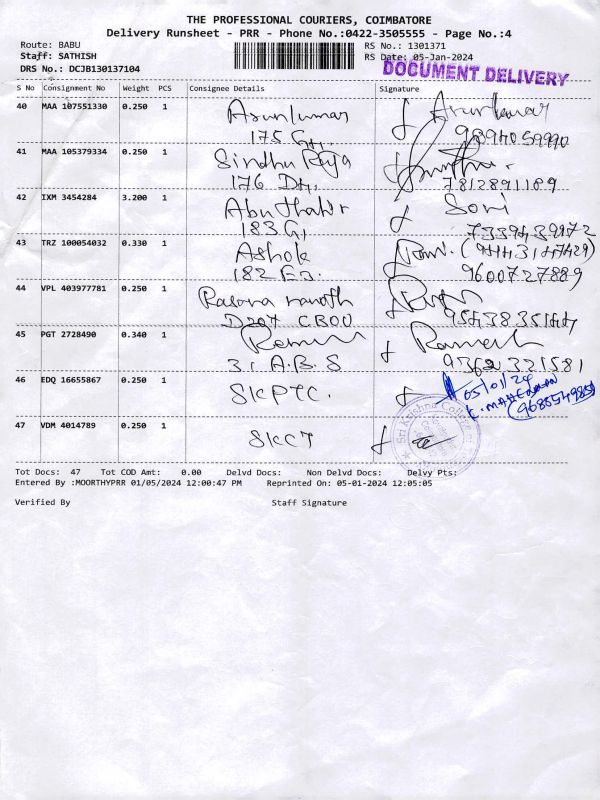 THE PROFESSIONAL COURIERS, COIMBATORE
Delivery Runsheet - PRR - Phone No.:0422-3505555 - Page No.:4
Route: BABU
RS No.: 1301371
Staff: SATHISH
RS Date: 05-Jan-2024
DRS No.: DCJB130137104
DOCUMENT DELIVERY
S No Consignment No Weight PCS Consignee Details Signature
40 MAA 107551330 0.250 1 Arunkumar Arunkumar
175 G1.
41 MAA 105379334 0.250 1 Sindhu Raja
176 D4. 7812891189
42 IXM 3454284 3.200 1 Abuthahir Soni
183 G1 7339439172
43 TRZ 100054032 0.330 1 Ashok
182 E3. 9600727889
44 VPL 403977781 0.250 1
D207 CBOU
45 PGT 2728490 0.340 1 Ramesh
31 A.B.S 9362321581
46 EDQ 16655867 0.250 1 SKPTC. 05/01/24
47 VDM 4014789 0.250 1 SKCT
Sri Krishna College
Tot Docs: 47 Tot COD Amt: 0.00 Delvd Docs: Non Delvd Docs: Delvy Pts:
Entered By :MOORTHYPRR 01/05/2024 12:00:47 PM Reprinted On: 05-01-2024 12:05:05
Verified By Staff Signature